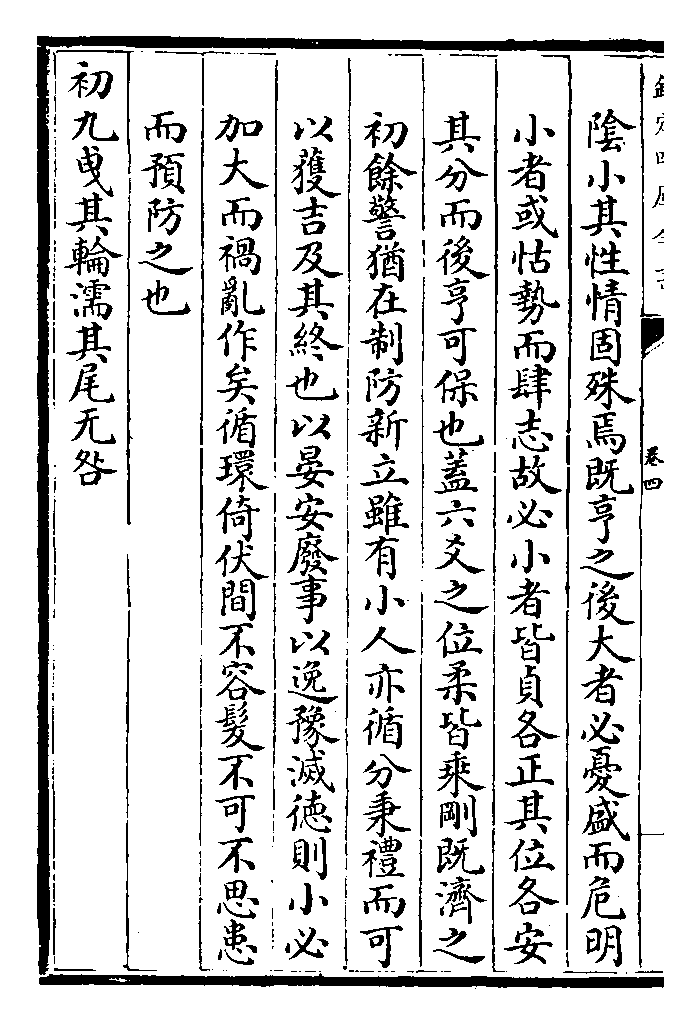 欽定四庫全書
卷四
陰小其性情固殊焉既亨之後大者必憂盛而危明
小者或怙勢而肆志故必小者皆貞各正其位各安
其分而後亨可保也蓋六爻之位柔皆乘剛既濟之
初餘警猶在制防新立雖有小人亦循分秉禮而可
以獲吉及其終也以晏安廢事以逸豫滅徳則小必
加大而禍亂作矣循環倚伏間不容髮不可不思患
而預防之也
初九曵其輪濡其尾无咎